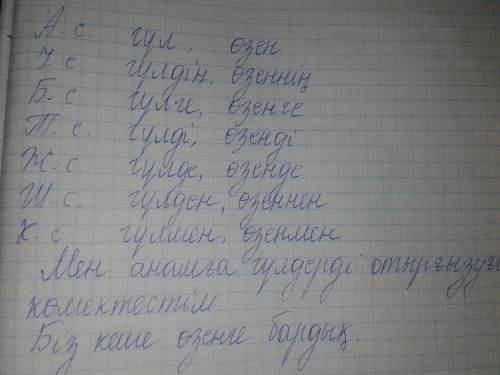 А. с. гүл, өзен
І. с. гүлдің, өзеннің
Б. с. гүлге, өзенге
Т. с. гүлді, өзенді
Ж. с. гүлде, өзенде
Ш. с. гүлден, өзеннен
К. с гүлмен, өзенмен
Мен анашға гүлдерді отырғызуға
көмектестім.
Біз кеше өзенге бардық.